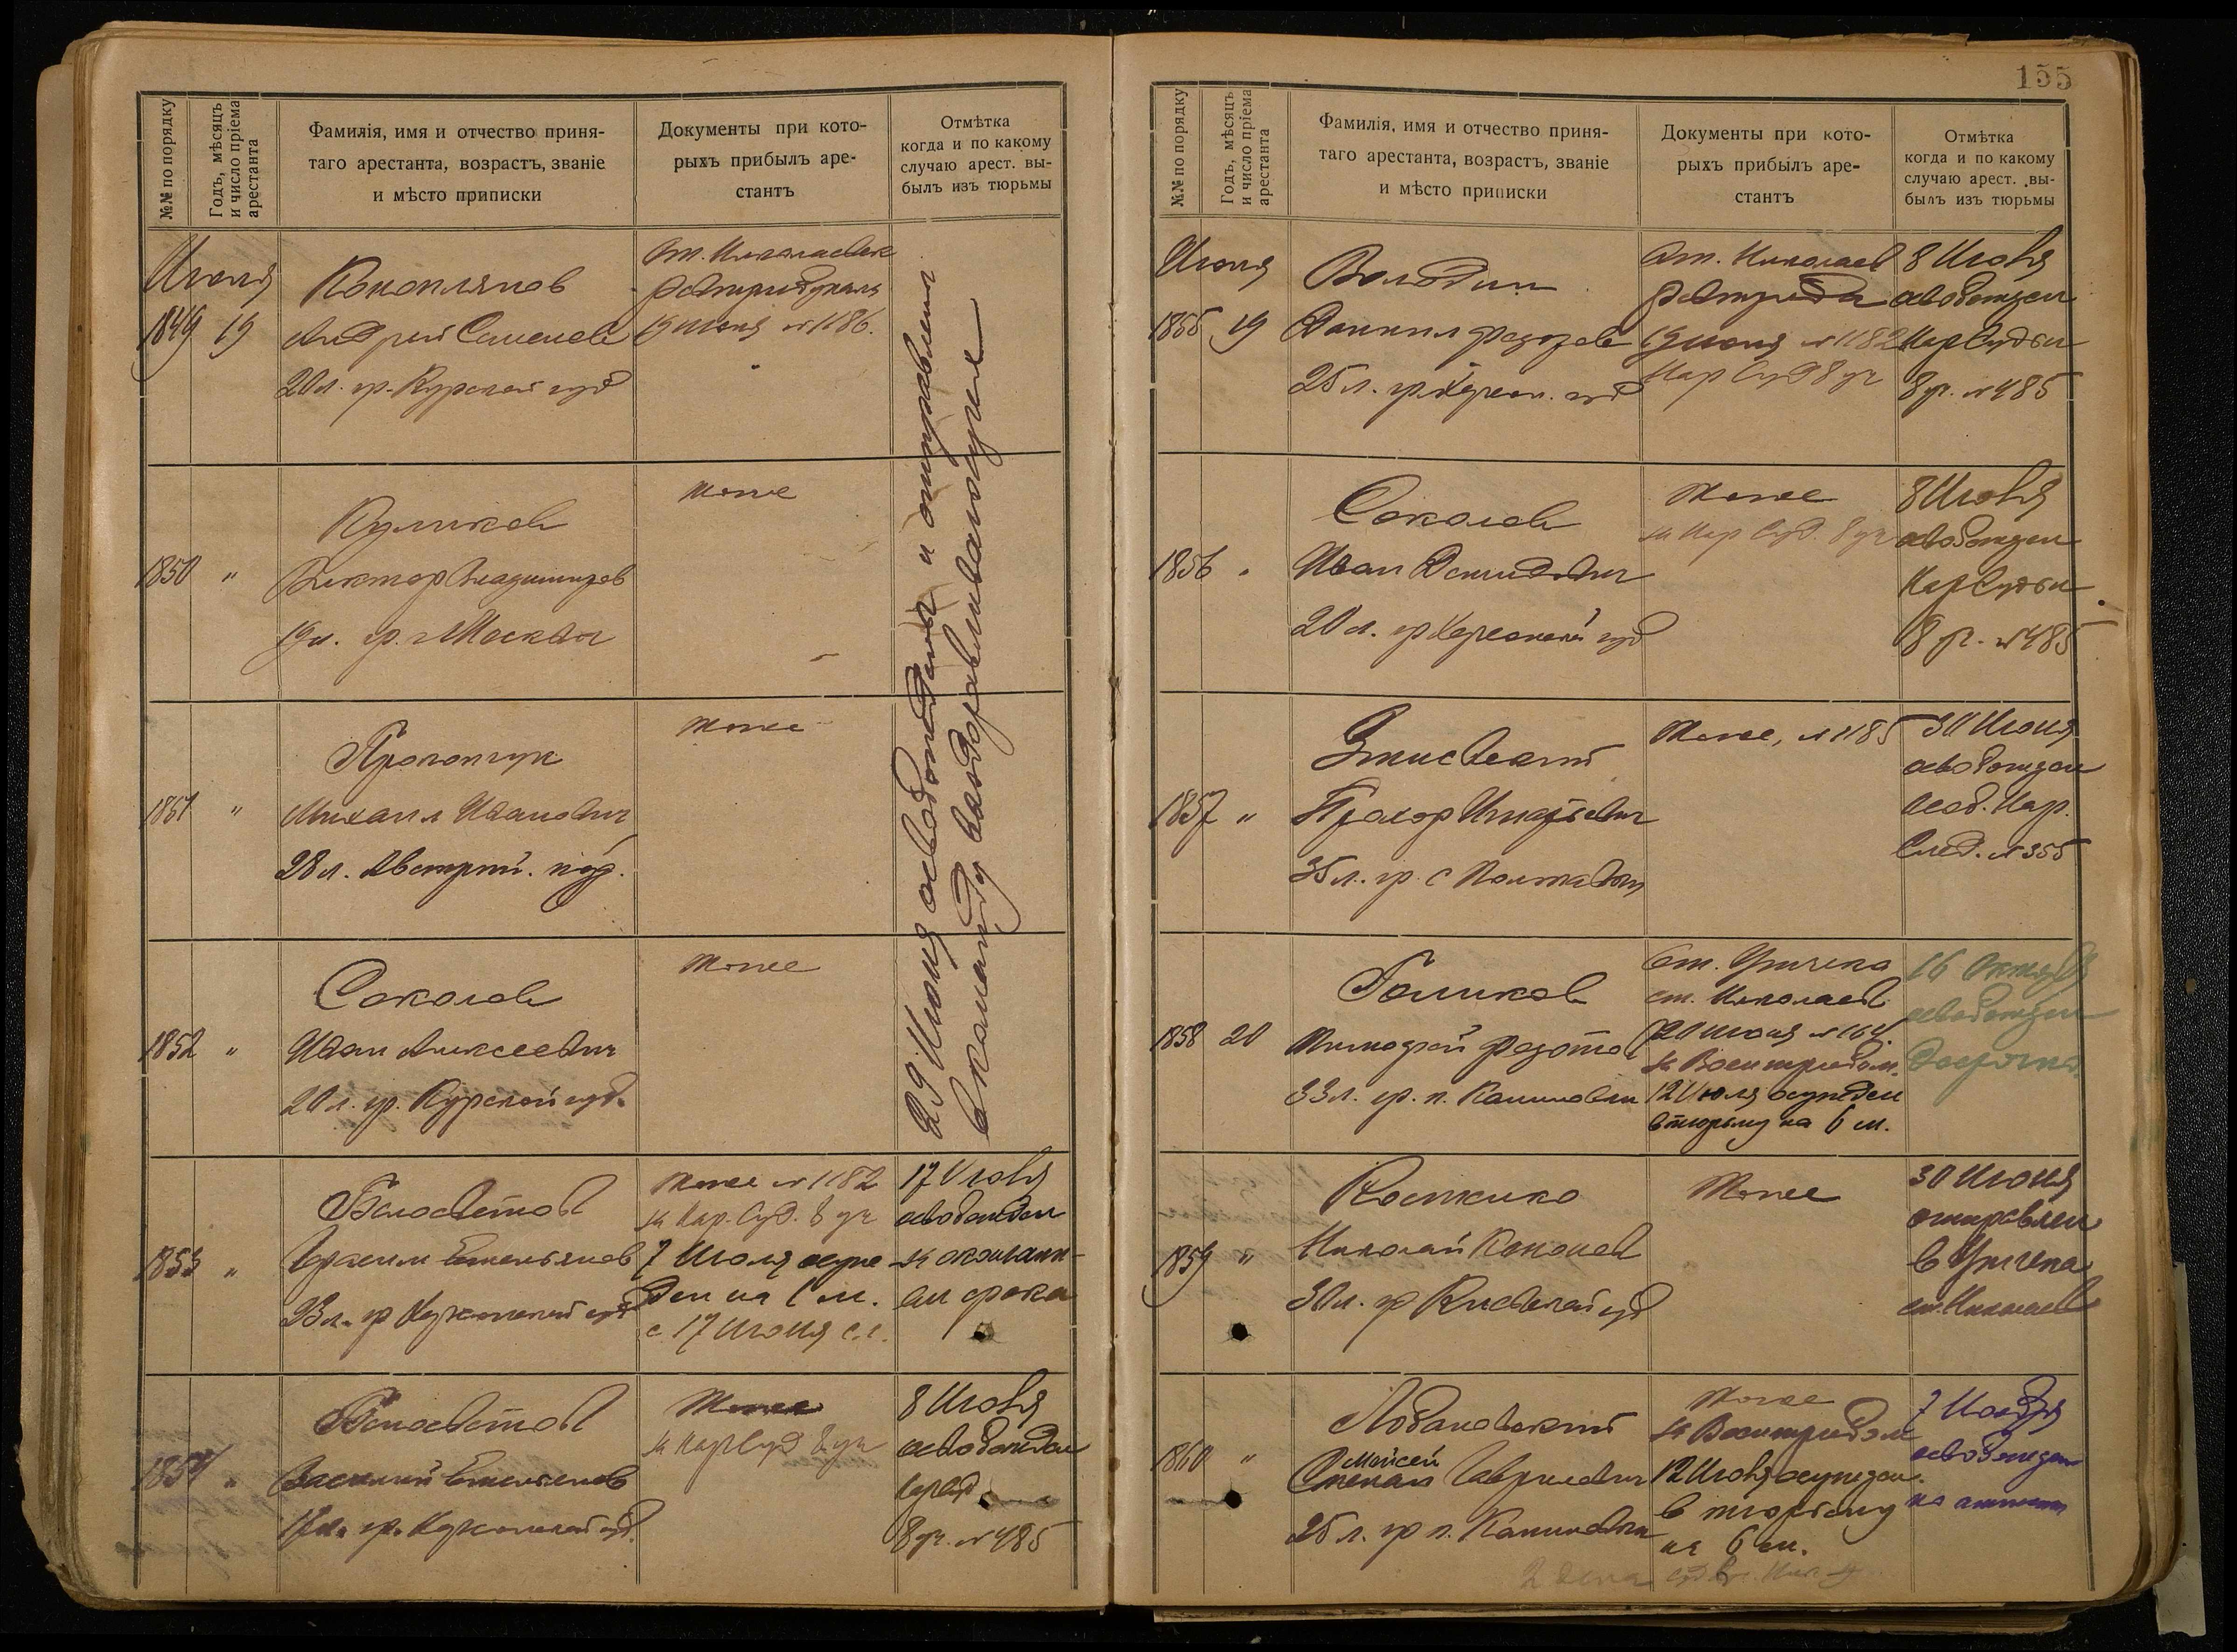 №№ по порядку
Годъ, мѣсяцъ
и число пріема
арестанта
Фамилія, имя и отчество приня-
таго арестанта, возрастъ, званіе
и мѣсто приписки
Документы при кото-
рыхъ прибылъ аре-
стантъ
Отмѣтка
когда и по какому
случаю арест. вы-
былъ изъ тюрьмы
Июня
1849 19
Коноплянов
Андрей Семенов
20 л. гр. Курской губ
от. Николаевск
19 июня № 1186.
29 Июня освобождены и отправлены
в команду выздоравливающих
1850 "
Куликов
Виктор Владимиров
19 л. гр. г Москвы
тоже
1851 "
Прокопчук
Михаил Иванович
28 л. Австрий. под.
тоже
1852 "
Соколов
Иван Алексеевич
20 л. гр. Курской губ.
тоже
1853 "
Белосветов
Герасим Емельянов
23 л. гр Херсонской губ
тоже № 1182
за Нар. Суд. 8 уч
7 Июля осуж-
ден на 1 м.
с 17 Июня с.г.
17 Июля
освобожден
за окончани-
ем срока
1854 "
Белосветов
Василий Емельянов
17 л. гр. Херсонской губ.
тоже
за Нар Суд 8 уч
8 Июля
освобожден
8 уч. № 485
155
№№ по порядку
Годъ, мѣсяцъ
и число пріема
арестанта
Фамилія, имя и отчество приня-
таго арестанта, возрастъ, званіе
и мѣсто приписки
Документы при кото-
рыхъ прибылъ аре-
стантъ
Отмѣтка
когда и по какому
случаю арест. вы-
былъ изъ тюрьмы
Июня
1855 19
Володин
Даниил Федоров
25 л. гр. Херсон. губ
от. Николаев
19 июня № 1182
Нар Суд 8 уч
8 Июля
освобожден
Нар Судьи
8 уч. № 485
1856 "
Соколов
Иван Демидович
20 л. гр Херсонской губ
тоже
за Нар Суд. 8 уч
8 Июля
освобожден
Нар Судьи
8 уч. № 485
1857 "
Змиевский
Прохор Игнатьевич
35 л. гр. с Полтавки
тоже, № 1185
30 Июня
освобожден
Нар.
След. № 355
1858 20
Голиков
Тимофей Федотов
33 л. гр. п. Калиновки
От. Угрчека
ст. Николаев
20 июня № 1164
за Воентрибом.
12 Июля осужден
в тюрьму на 6 м.
16 Октября
освобожден
досрочно
1859 "
Костенко
Николай Кононов
30 л. гр Киевской губ
тоже
30 Июня
отправлен
в Угрчека
ст. Николаев
1860 "
Лобановский
Мойсей
Степан Гаврилович
25 л. гр п. Калиновки
тоже
за Воентрибом
12 Июля осужден
в тюрьму
на 6 м.
7 Ноября
освобожден
по амнистии